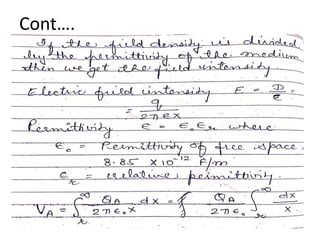 Cont....
If the field density is divided
by the permittivity of the medium
then we get the field intensity
Electric field intensity E = D/ε =
= q/2πεx
Permittivity ε = ε₀εᵣ where
ε₀ = Permittivity of free space.
8.85 × 10⁻¹² F/m
εᵣ = relative permittivity.
V_A = ∫ᵣ^∞ Q_A/2πε₀x dx = Q_A/2πε₀ ∫ᵣ^∞ dx/x